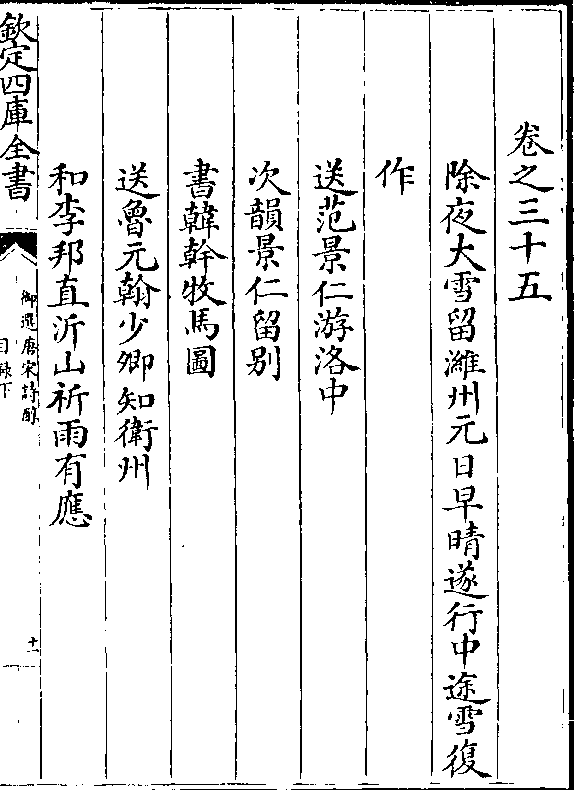 卷之三十五
除夜大雪留濰州元日早晴遂行中途雪復
作
送范景仁游洛中
次韻景仁留别
書韓幹牧馬圖
送魯元翰少卿知衛州
和李邦直沂山祈雨有應
欽定四庫全書
御選唐宋詩醇
目録下
十一